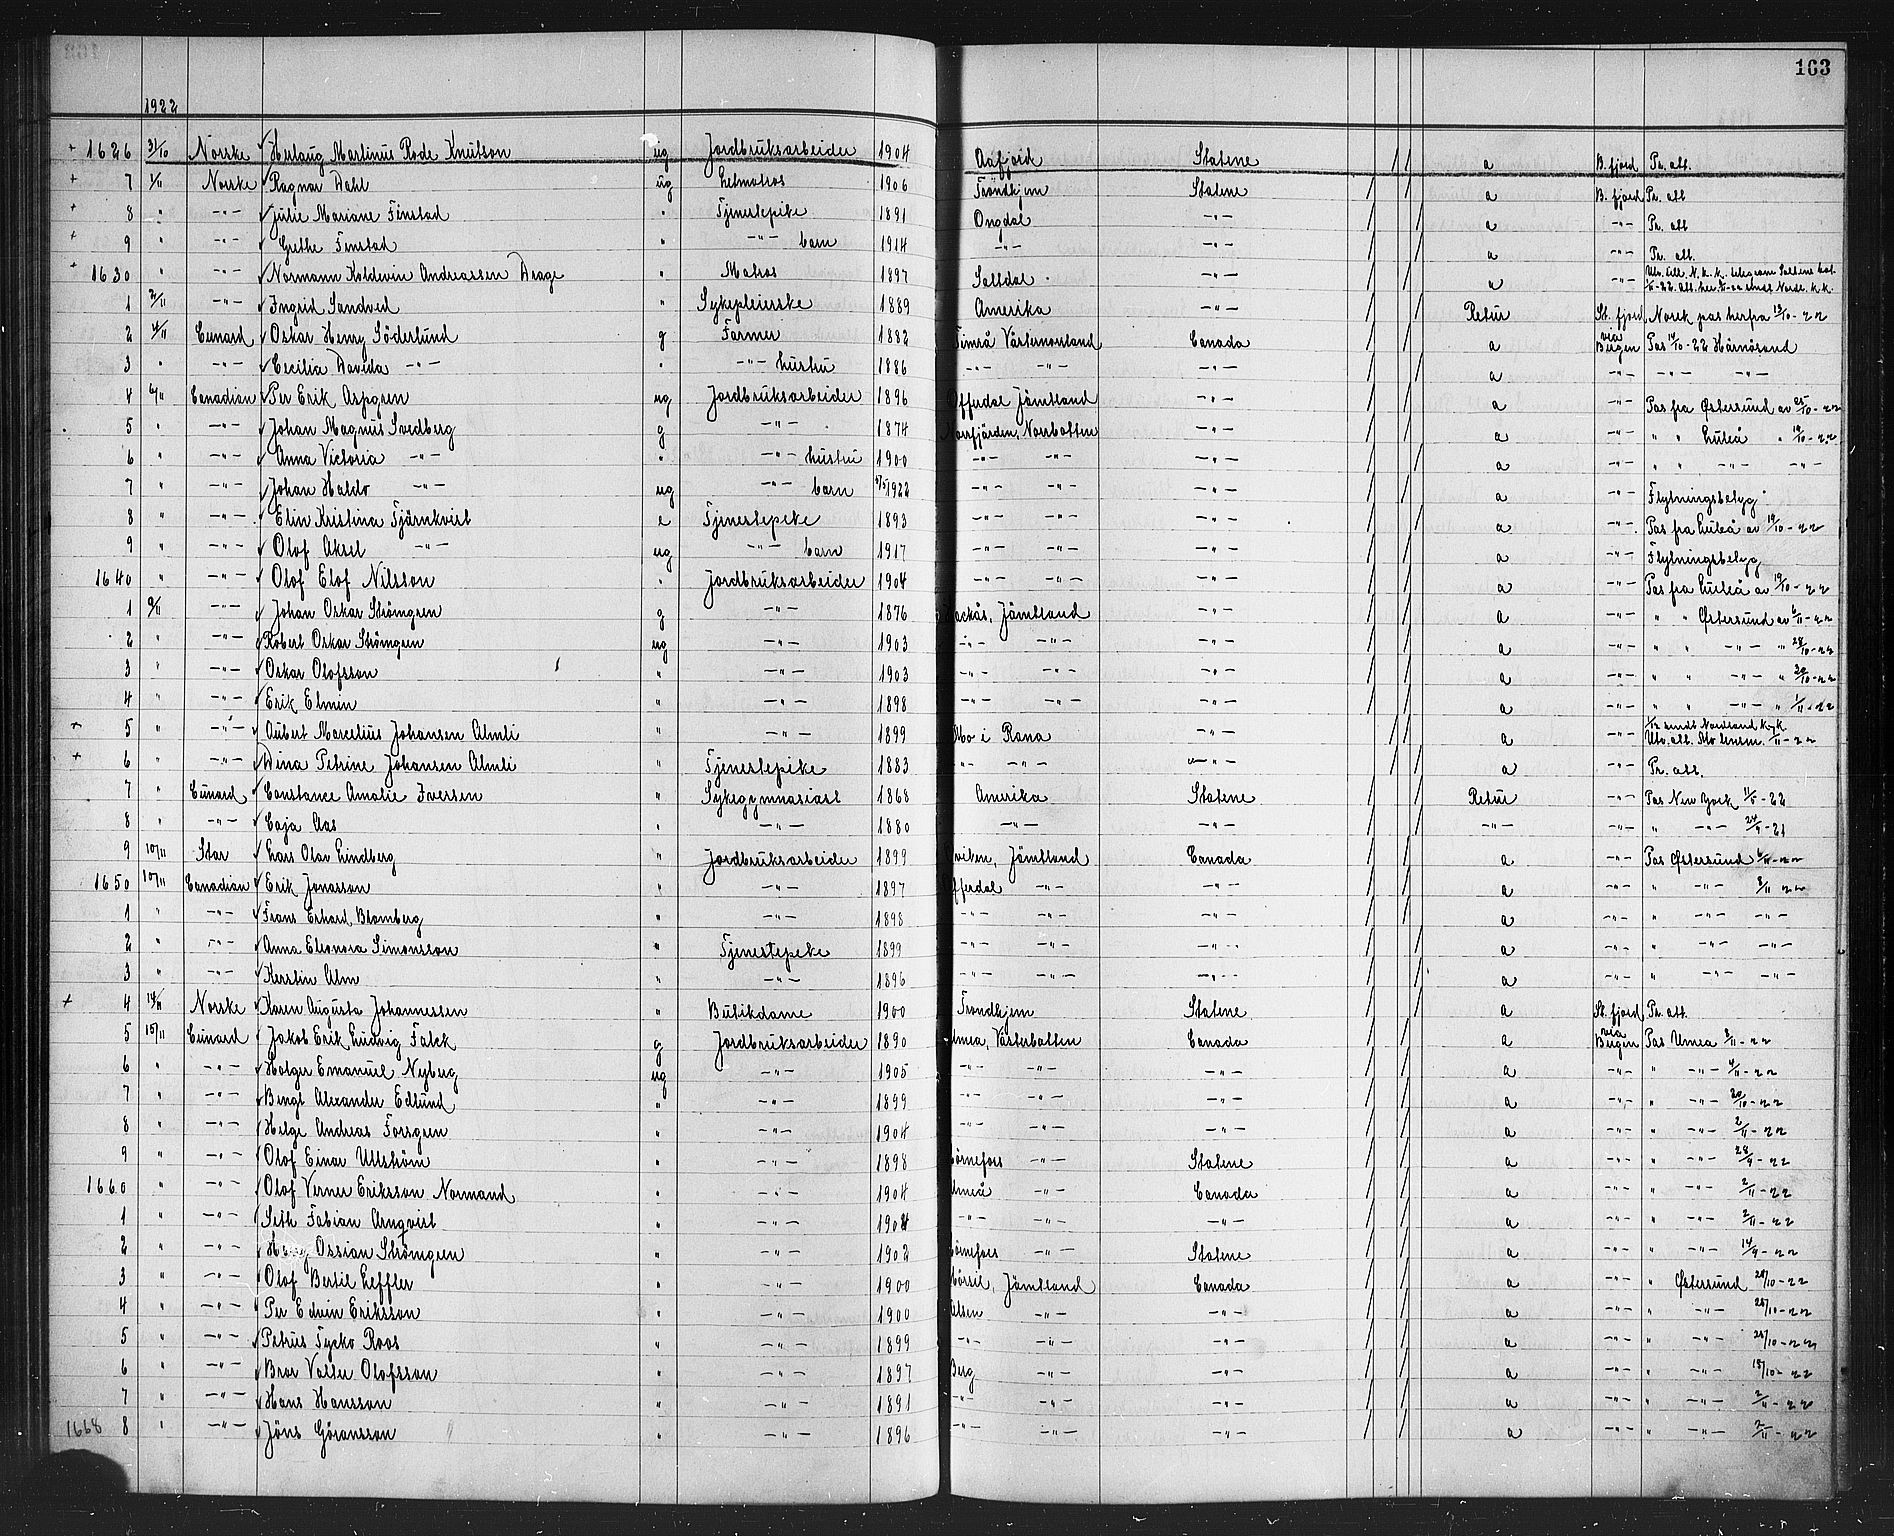 163
1922
+ 1626 31/10 Norske Herlaug Martinus Rode Knutson ug Jordbruksarbeider 1904 Aafjord Statene / / a B. fjord Pr. att.
+ 7 1/11 Norske Ragnar Dahl ug Letmatros 1906 Trondhjem Statene / / a B. fjord Pr. att
+ 8 " —"— Julie Mariane Finstad " Tjenestepike 1891 Ongdal —"— / / a —"— Pr. att
+ 9 " —"— Grethe Finstad " —"— barn 1914 —"— —"— / / a —"— Pr. att.
+ 1630 " —"— Normann Koldevin Andreassen Drage " Matros 1897 Saltdal —"— / / a —"—
1 2/11 —"— Ingrid Sandved " Sykepleierske 1889 Amerika —"— / / Retur St. fjord Norsk pas herfra 13/10-22
2 4/11 Cunard Oskar Henry Söderlund g Farmer 1882 Timrå Västernorrland Canada / / a via Bergen Pas 14/10-22 Härnösand
3 " —"— Cecilia Davida —"— " —"— hustru 1886 —"— —"— —"— / / a —"— —"— —"—
4 6/11 Canadian Per Erik Aspgren ug Jordbruksarbeider 1896 Offerdal Jämtland —"— / / a —"— Pas fra Østersund av 25/10-22
5 " —"— Johan Magnus Svedberg g —"— 1874 Norrfjärden, Norrbotten —"— / / a —"— " " Luleå " 19/10-22
6 " —"— Anna Victoria —"— " —"— hustru 1900 —"— —"— —"— / / a —"— " " —"— —"—
7 " —"— Johan Haldo —"— ug —"— barn 1922 —"— —"— —"— / / a —"— Flytningsbetyg
8 " —"— Elin Kristina Tjärnkvist e Tjenestepike 1893 —"— —"— —"— / / a —"— Pas fra Luleå av 19/10-22
9 " —"— Olof Aksel —"— ug —"— barn 1917 —"— —"— —"— / / a —"— Flytningsbetyg
1640 " —"— Olof Elof Nilsson " Jordbruksarbeider 1904 —"— —"— —"— / / a —"— Pas fra Luleå av 19/10-22
1 9/11 —"— Johan Oskar Strömgren g —"— 1876 Hackås, Jämtland —"— / / a —"— " " Østersund av 6/11-22
2 " —"— Robert Oskar Strömgren ug —"— 1903 —"— —"— —"— / / a —"— " " —"— " 28/10-22
3 " —"— Oskar Olofsson " —"— 1903 —"— —"— —"— / / a —"— " " —"— " 30/10-22
4 " —"— Erik Elmin " —"— 1898 —"— —"— —"— / / a —"— " " —"— " 1/11-22
+ 5 " —"— Aubert Marcelius Johansen Almli " —"— 1899 Mo i Rana —"— / / a —"—
+ 6 " —"— Dina Petrine Johansen Almli " Tjenestepike 1883 —"— —"— —"— / / a —"— Pr. att.
7 " Cunard Constance Amalie Iversen " Sykegymnasiast 1868 Amerika Statene / / Retur —"— Pas New York 11/5-22
8 " —"— Caja Aas " —"— 1880 —"— —"— / / —"— —"— " —"— 24/9-21
9 10/11 Star Lars Olav Lindberg " Jordbruksarbeider 1899 Oviken, Jämtland Canada / / a —"— Pas Østersund 6/11-22
1650 10/11 Canadian Erik Jonasson " —"— 1897 Offerdal —"— —"— / / a —"— " —"— 3/11 22
1 " —"— Frans Erhard Blomberg " —"— 1898 —"— —"— —"— / / a —"— " —"— —"—
2 " —"— Anna Eleonora Simonsson " Tjenestepike 1899 —"— —"— —"— / / a —"— " —"— —"—
3 " —"— Kerstin Alm " —"— 1896 —"— —"— —"— / / a —"— " —"— —"—
+ 4 14/11 Norske Karen Augusta Johannessen " Butikdame 1900 Trondhjem Statene / / a St. fjord Pr. att.
5 15/11 Cunard Jakob Erik Ludvig Falck g Jordbruksarbeider 1890 Umea, Västerbotten Canada / / a via Bergen Pas Umea 8/11-22
6 " —"— Holger Emanuel Nyberg ug —"— 1905 —"— —"— —"— / / a —"— " —"— 4/11-22
7 " —"— Bengt Alexander Edlund " —"— 1899 —"— —"— —"— / / a —"— " —"— 30/10-22
8 " —"— Helge Andreas Forsgren " —"— 1904 —"— —"— —"— / / a —"— " —"— 2/11-22
9 " —"— Olof Einar Ullström " —"— 1898 Hörnefors —"— Statene / / a —"— " —"— 28/9-22
1660 " —"— Olof Verner Eriksson Normand " —"— 1904 Umeå —"— Canada / / a —"— " —"— 2/11-22
1 " —"— Seth Fabian Arnqvist " —"— 1904 —"— —"— —"— / / a —"— " —"— 2/11-22
2 " —"— Ossian Strömgren " —"— 1902 Hörnefors —"— Statene / / a —"— " —"— 14/9-22
3 " —"— Olof Bertil Leffler " —"— 1900 Mörsil, Jämtland Canada / / a —"— " Østersund 28/10-22
4 " —"— Per Edvin Eriksson " —"— 1900 Alsen —"— —"— / / a —"— " —"— 28/10-22
5 " —"— Petrus Tycko Roos " —"— 1899 —"— —"— —"— / / a —"— " —"— 28/10-22
6 " —"— Bror Valter Olofsson " —"— 1897 Berg —"— —"— / / a —"— " —"— 18/10-22
7 " —"— Hans Hansson " —"— 1891 —"— —"— —"— / / a —"— " —"— 2/11-22
1668 8 " —"— Jöns Göransson " —"— 1896 —"— —"— —"— / / a —"— " —"— 2/11-22